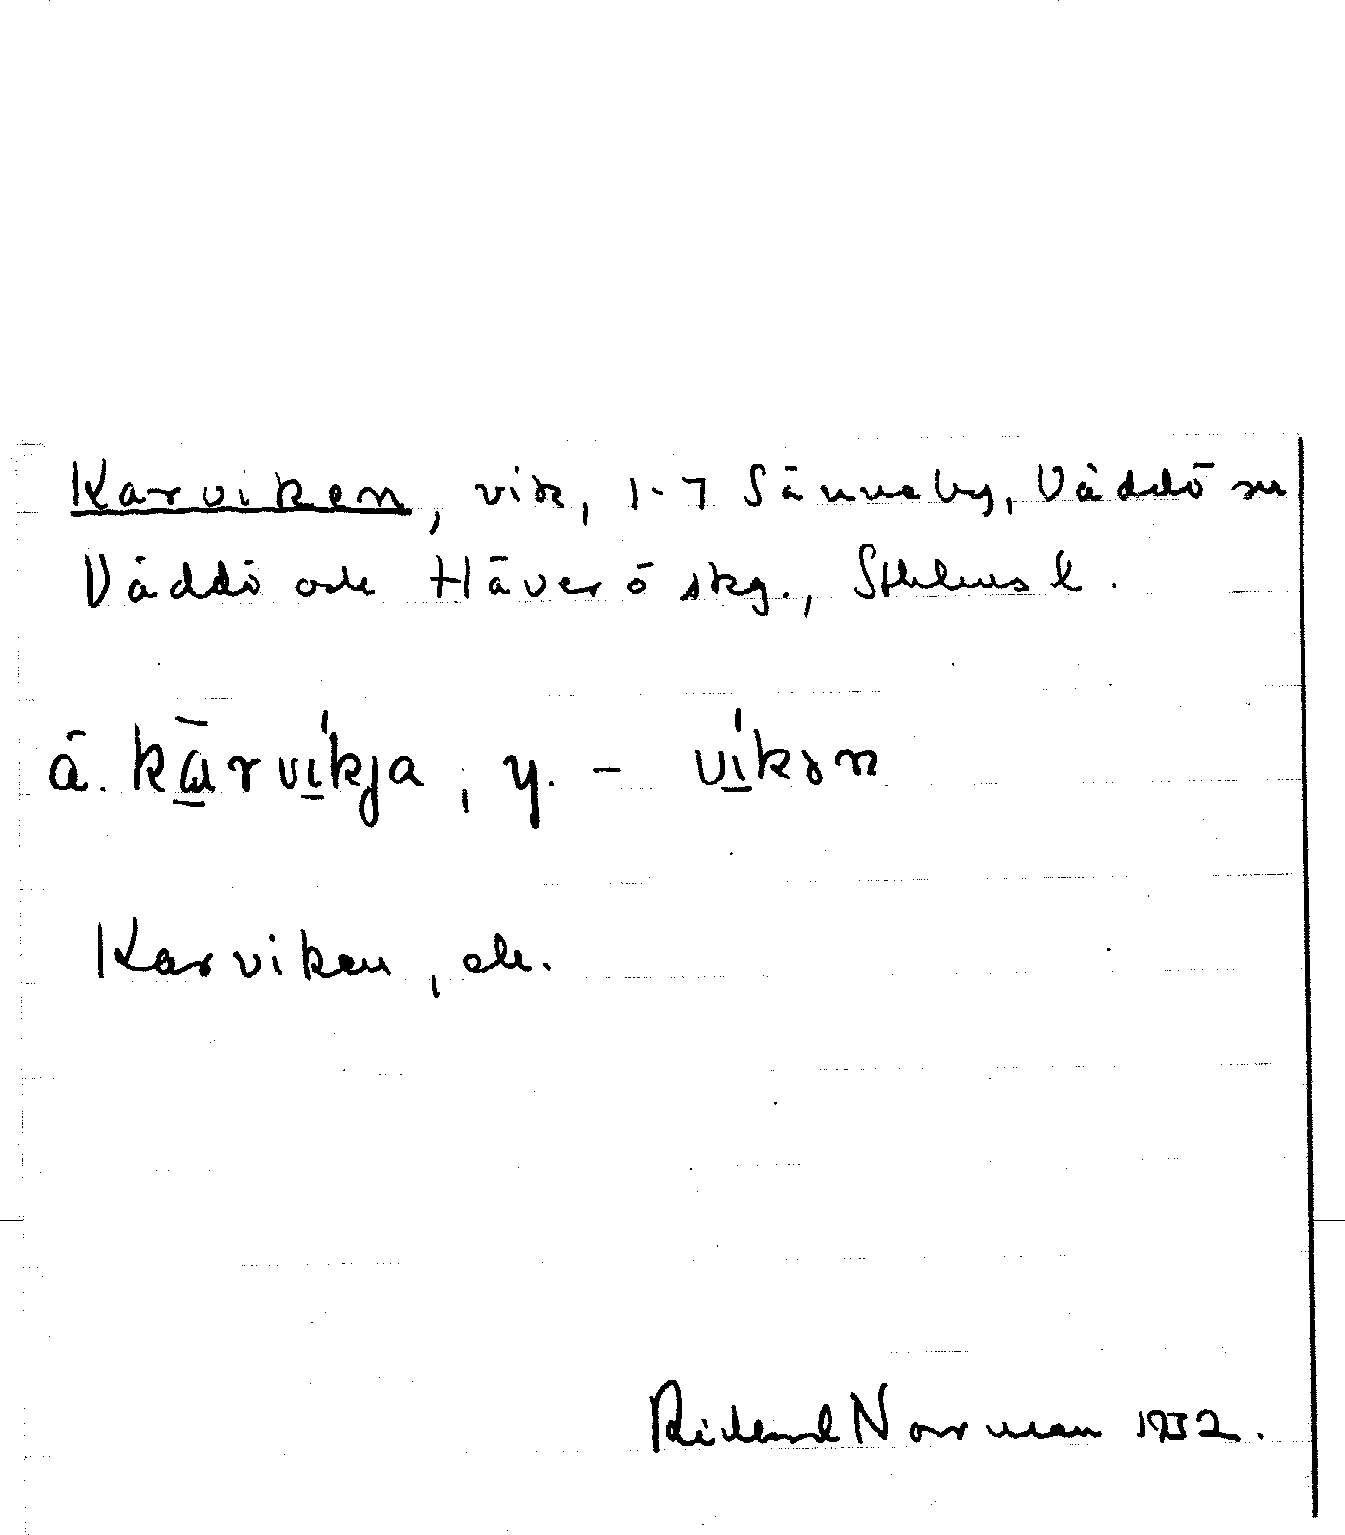 Karviken, vik, 1-7 Sännaby, Väddö sn
Väddö och Häverö skg., Sthlms l.
ä. kārvíkja, y. – víkən
Karviken, ek.
Rickard Norrman 1932.